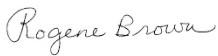 Rogene Brown